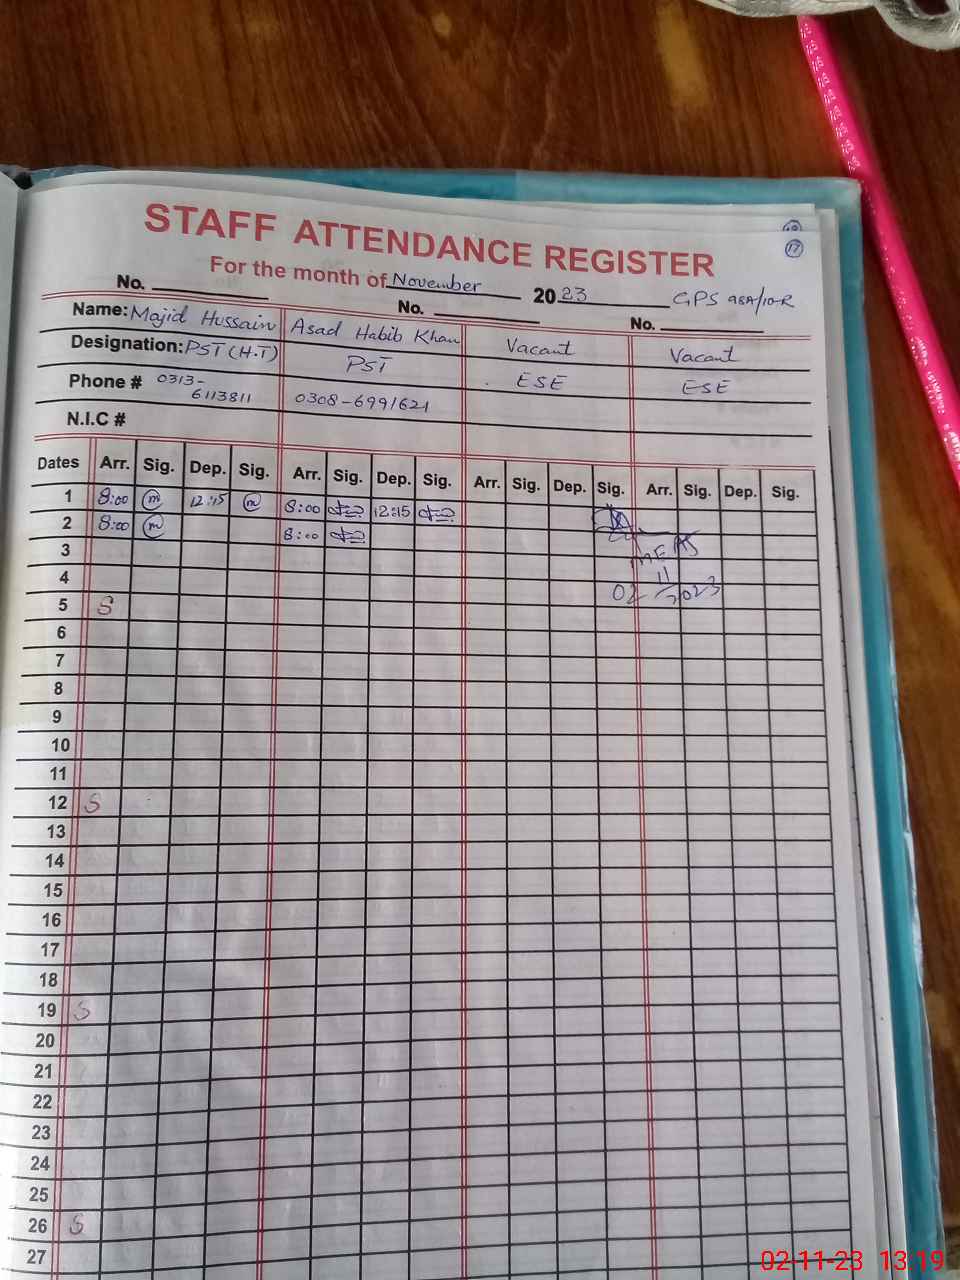 17
STAFF ATTENDANCE REGISTER
For the month of November 2023 GPS 98A/10-R
No. No. No.
Name: Majid Hussain Asad Habib Khan Vacant Vacant
Designation: PST (H.T) PST ESE ESE
Phone # 0313-6113811 0308-6991621
N.I.C #
Dates Arr. Sig. Dep. Sig. Arr. Sig. Dep. Sig. Arr. Sig. Dep. Sig. Arr. Sig. Dep. Sig.
1 8:00 m 12:15 m 8:00 12:15
2 8:00 m 8:00
MEAS
3
4 02/11/2023
5 S
6
7
8
9
10
11
12 S
13
14
15
16
17
18
19 S
20
21
22
23
24
25
26 S
27
02-11-23 13:19